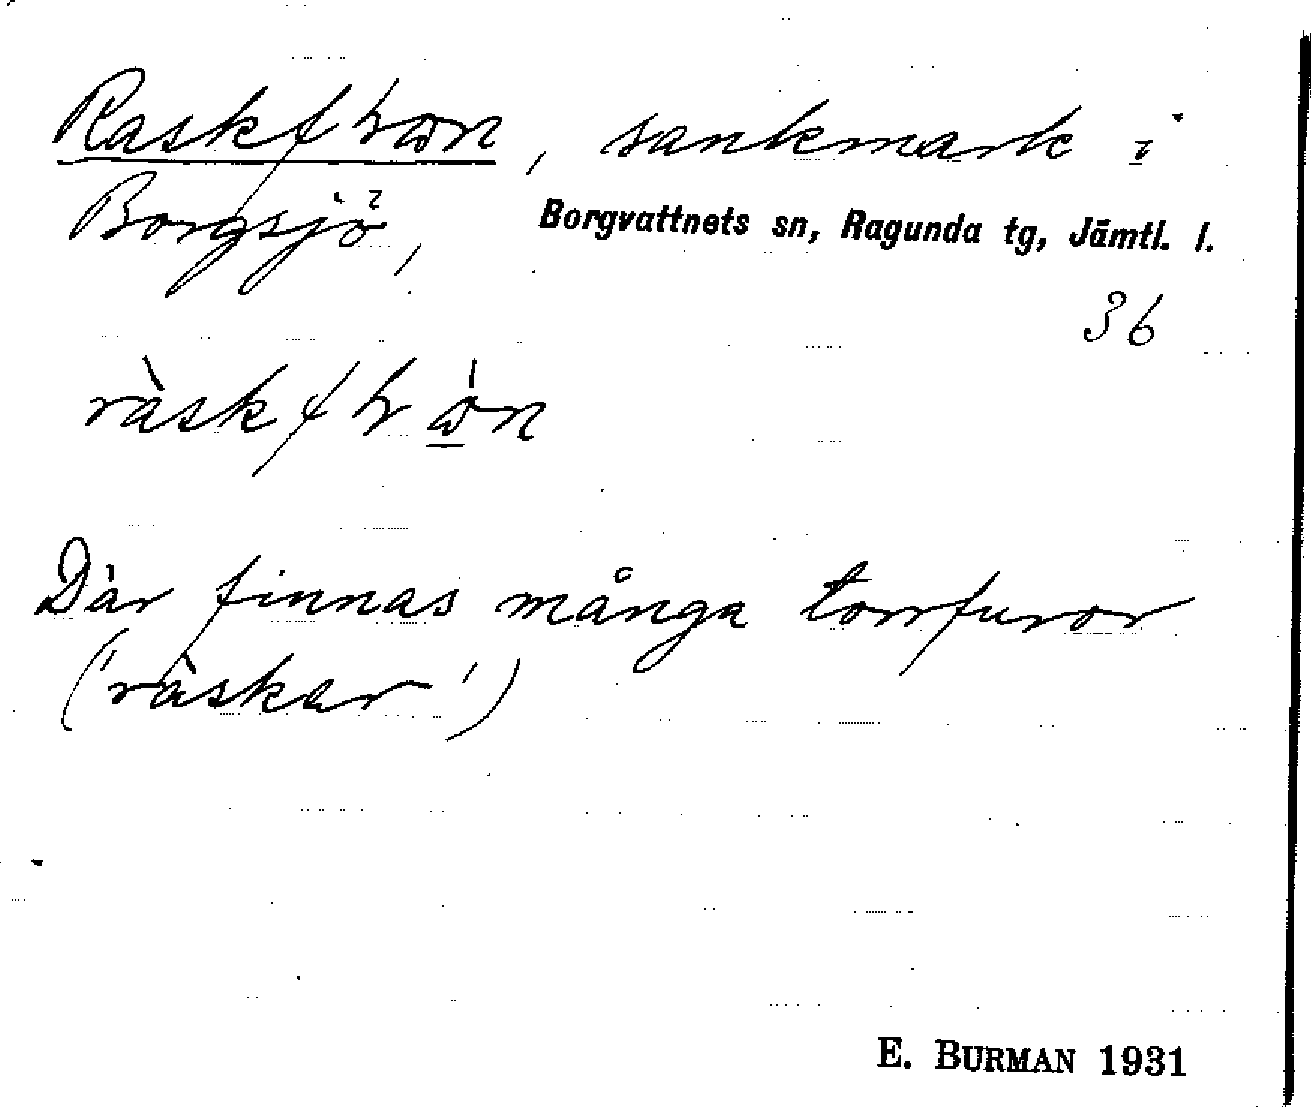 Raskftræn, sankmark i
Borgsjö,
Borgvattnets sn, Ragunda tg, Jämtl. l.
36
Där finnas många torrfuror
('raskar')
E. BURMAN 1931